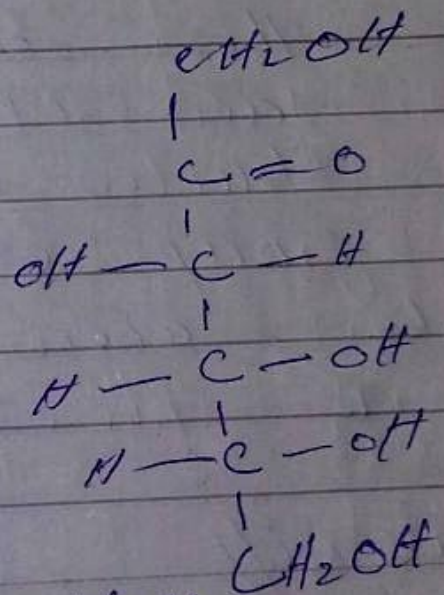 CH2OH
|
C=O
|
OH—C—H
|
H—C—OH
|
H—C—OH
|
CH2OH